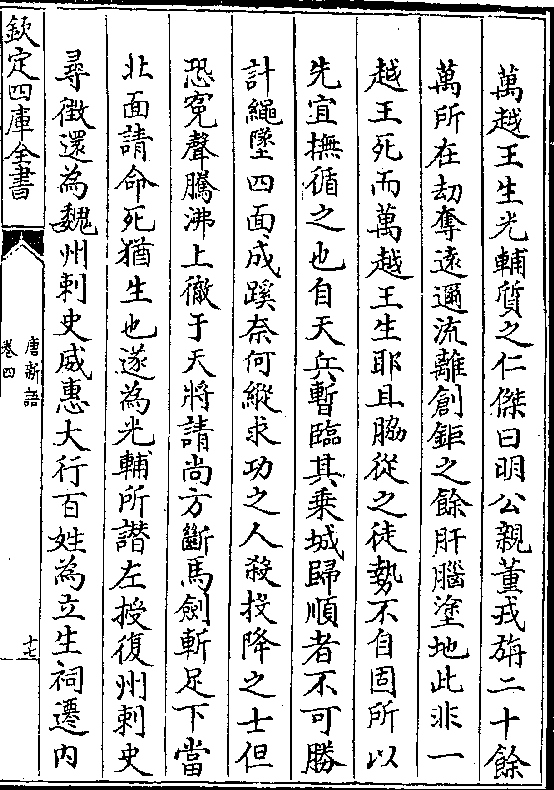 萬越王生光輔質之仁傑曰明公親董戎旃二十餘
萬所在刧奪遠邇流離創鉅之餘肝腦塗地此非一
越王死而萬越王生耶且脇從之徒勢不自固所以
先宜撫循之也自天兵暫臨其乘城歸順者不可勝
計繩墜四面成蹊奈何縱求功之人殺投降之士但
恐寃聲騰沸上徹于天將請尚方斷馬劍斬足下當
北面請命死猶生也遂為光輔所譖左授復州刺史
尋徵還為魏州刺史威惠大行百姓為立生祠遷内
欽定四庫全書
唐新語
卷四
十七